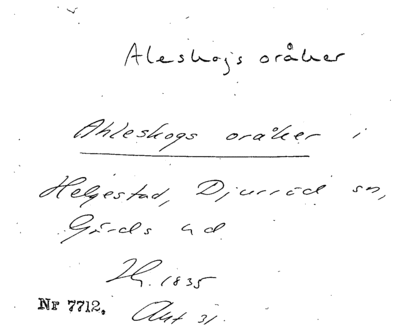 Aleskogs oråker
Ahleskogs oråker i
Helgestad, Djurröd sn,
Gärds hd
1835
Nr 7712. Akt 31.